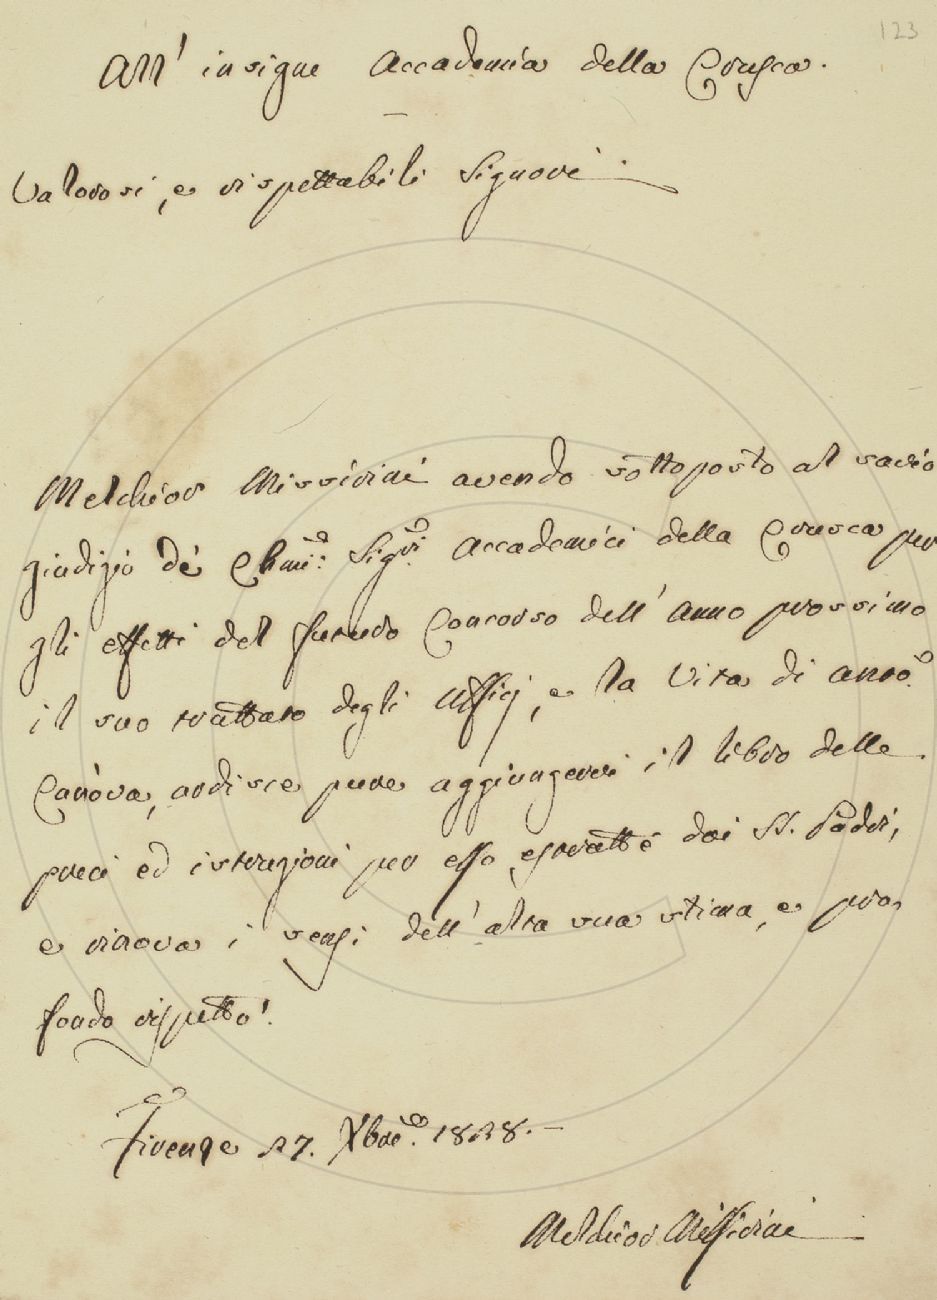 123
All' insigne Accademia della Crusca.
Valorosi, e rispettabili Signori.
Melchior Missirini avendo sottoposto al savio
giudizio de' Chmi: Sigri: Accademici della Crusca per
gli effetti del futuro Concorso dell' Anno prossimo
il suo trattato degli Ufficj, e la Vita di Anto.
Canòva, ardisce pure aggiungervi il libro delle
preci ed istruzioni per esso estratte dai SS. Padri,
e rinova i sensi dell' alta sua stima, e pro,
fondo rispetto.
Firenze 27. Xbre. 1828.
Melchior Missirini